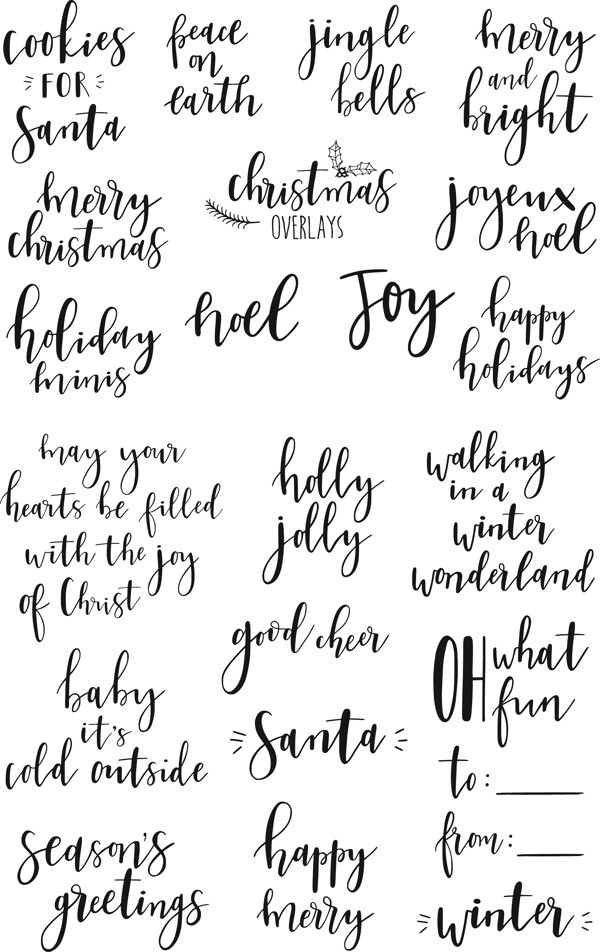 cookies
FOR
Santa
peace
on
earth
jingle
bells
merry
and
bright
merry
christmas
christmas
OVERLAYS
joyeux
noel
holiday
minis
noel
Joy
happy
holidays
may your
hearts be filled
with the joy
of Christ
holly
jolly
walking
in a
winter
wonderland
good cheer
baby
it's
cold outside
Santa
OH what
fun
to:
from:
season's
greetings
happy
merry
winter